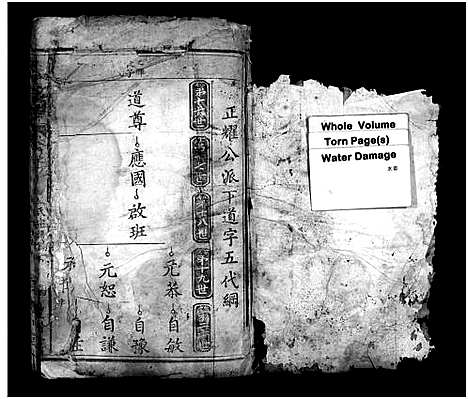 正耀公派下道字五代綱
第十六世
第十八世
第十九世
道尊 應國 啟班
元恭 自敏
自豫
元恕 自謙
Whole Volume
Torn Page(s)
Water Damage